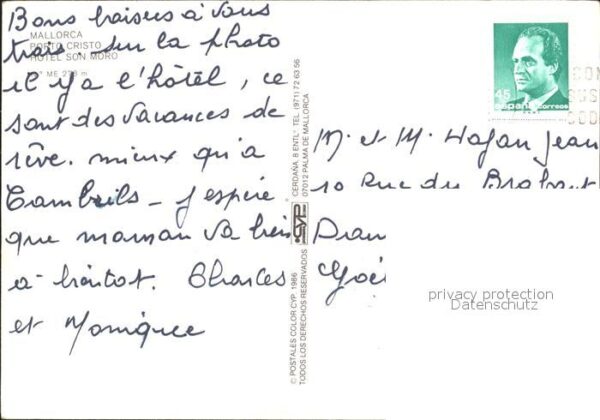 MALLORCA
PORTO CRISTO
HOTEL SON MORO
Bons baisers à vous
trois. sur la photo
il y a l'hôtel, ce
sont des vacances de
rêve. mieux qu'à
Cambrils - j'espère
que maman va bien
à bientôt. Charles
et Monique
CERDAÑA, 8 ENTLº TEL. (971) 72 63 56
07012 PALMA DE MALLORCA
CYP
© POSTALES COLOR CYP, 1986
TODOS LOS DERECHOS RESERVADOS
45
españa correos
M. et M. Jean
10 Rue du
privacy protection
Datenschutz